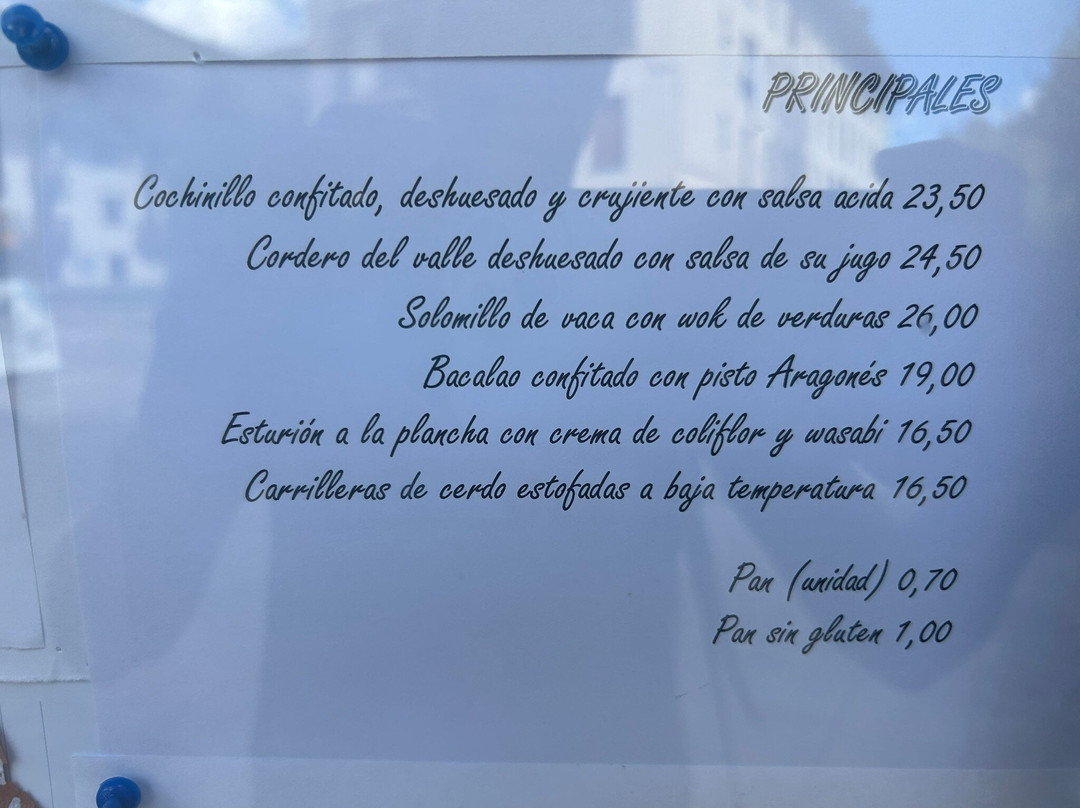 PRINCIPALES
Cochinillo confitado, deshuesado y crujiente con salsa acida 23,50
Cordero del valle deshuesado con salsa de su jugo 24,50
Solomillo de vaca con wok de verduras 26,00
Bacalao confitado con pisto Aragonés 19,00
Esturión a la plancha con crema de coliflor y wasabi 16,50
Carrilleras de cerdo estofadas a baja temperatura 16,50
Pan (unidad) 0,70
Pan sin gluten 1,00